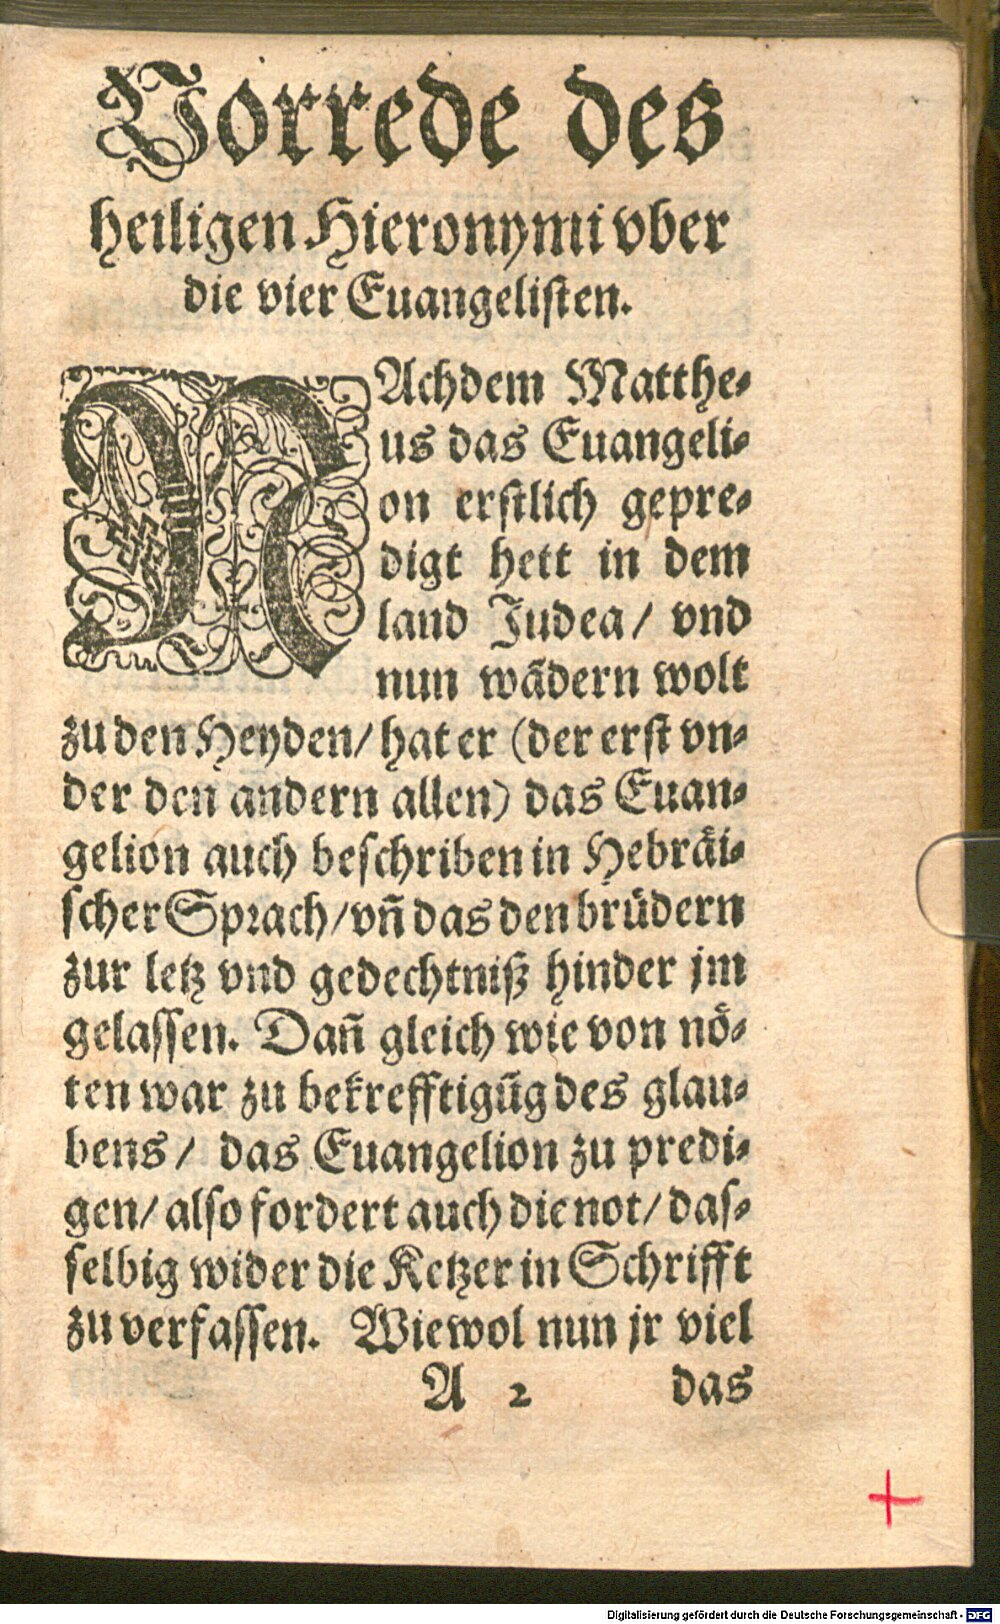 Vorrede des
heiligen Hieronymi vber
die vier Euangelisten.
NAchdem Matthe⸗
us das Euangeli⸗
on erstlich gepre⸗
digt hett in dem
land Judea/ vnd
nun wãdern wolt
zu den Heyden/ hat er (der erst vn⸗
der den andern allen) das Euan⸗
gelion auch beschriben in Hebräi⸗
scher Sprach/ vñ das den brüdern
zur letz vnd gedechtniß hinder jm
gelassen. Dañ gleich wie von nö⸗
ten war zu bekrefftigũg des glau⸗
bens/ das Euangelion zu predi⸗
gen/ also fordert auch die not/ das⸗
selbig wider die Ketzer in Schrifft
zu verfassen. Wiewol nun jr viel
A 2 das
Digitalisierung gefördert durch die Deutsche Forschungsgemeinschaft - DFG